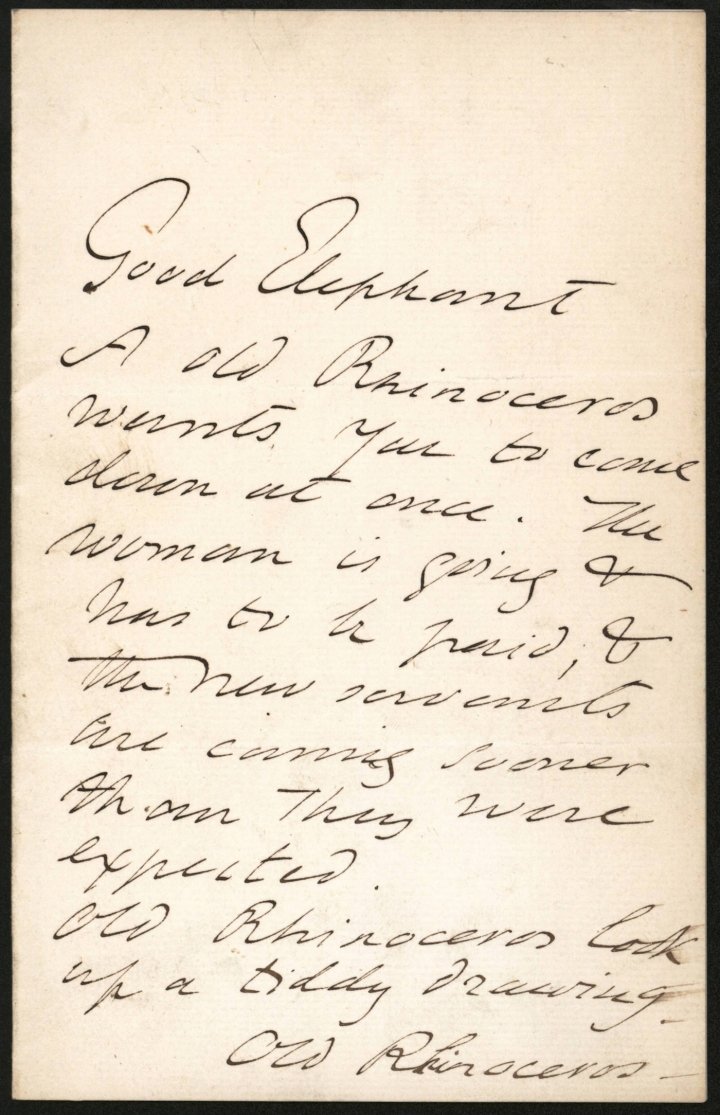 Good Elephant
A old Rhinoceros
wants you to come
down at once. The
woman is going &
has to be paid, &
the new servants
are coming sooner
than they were
expected.
Old Rhinoceros look
up a tiddy drawing.
Old Rhinoceros -